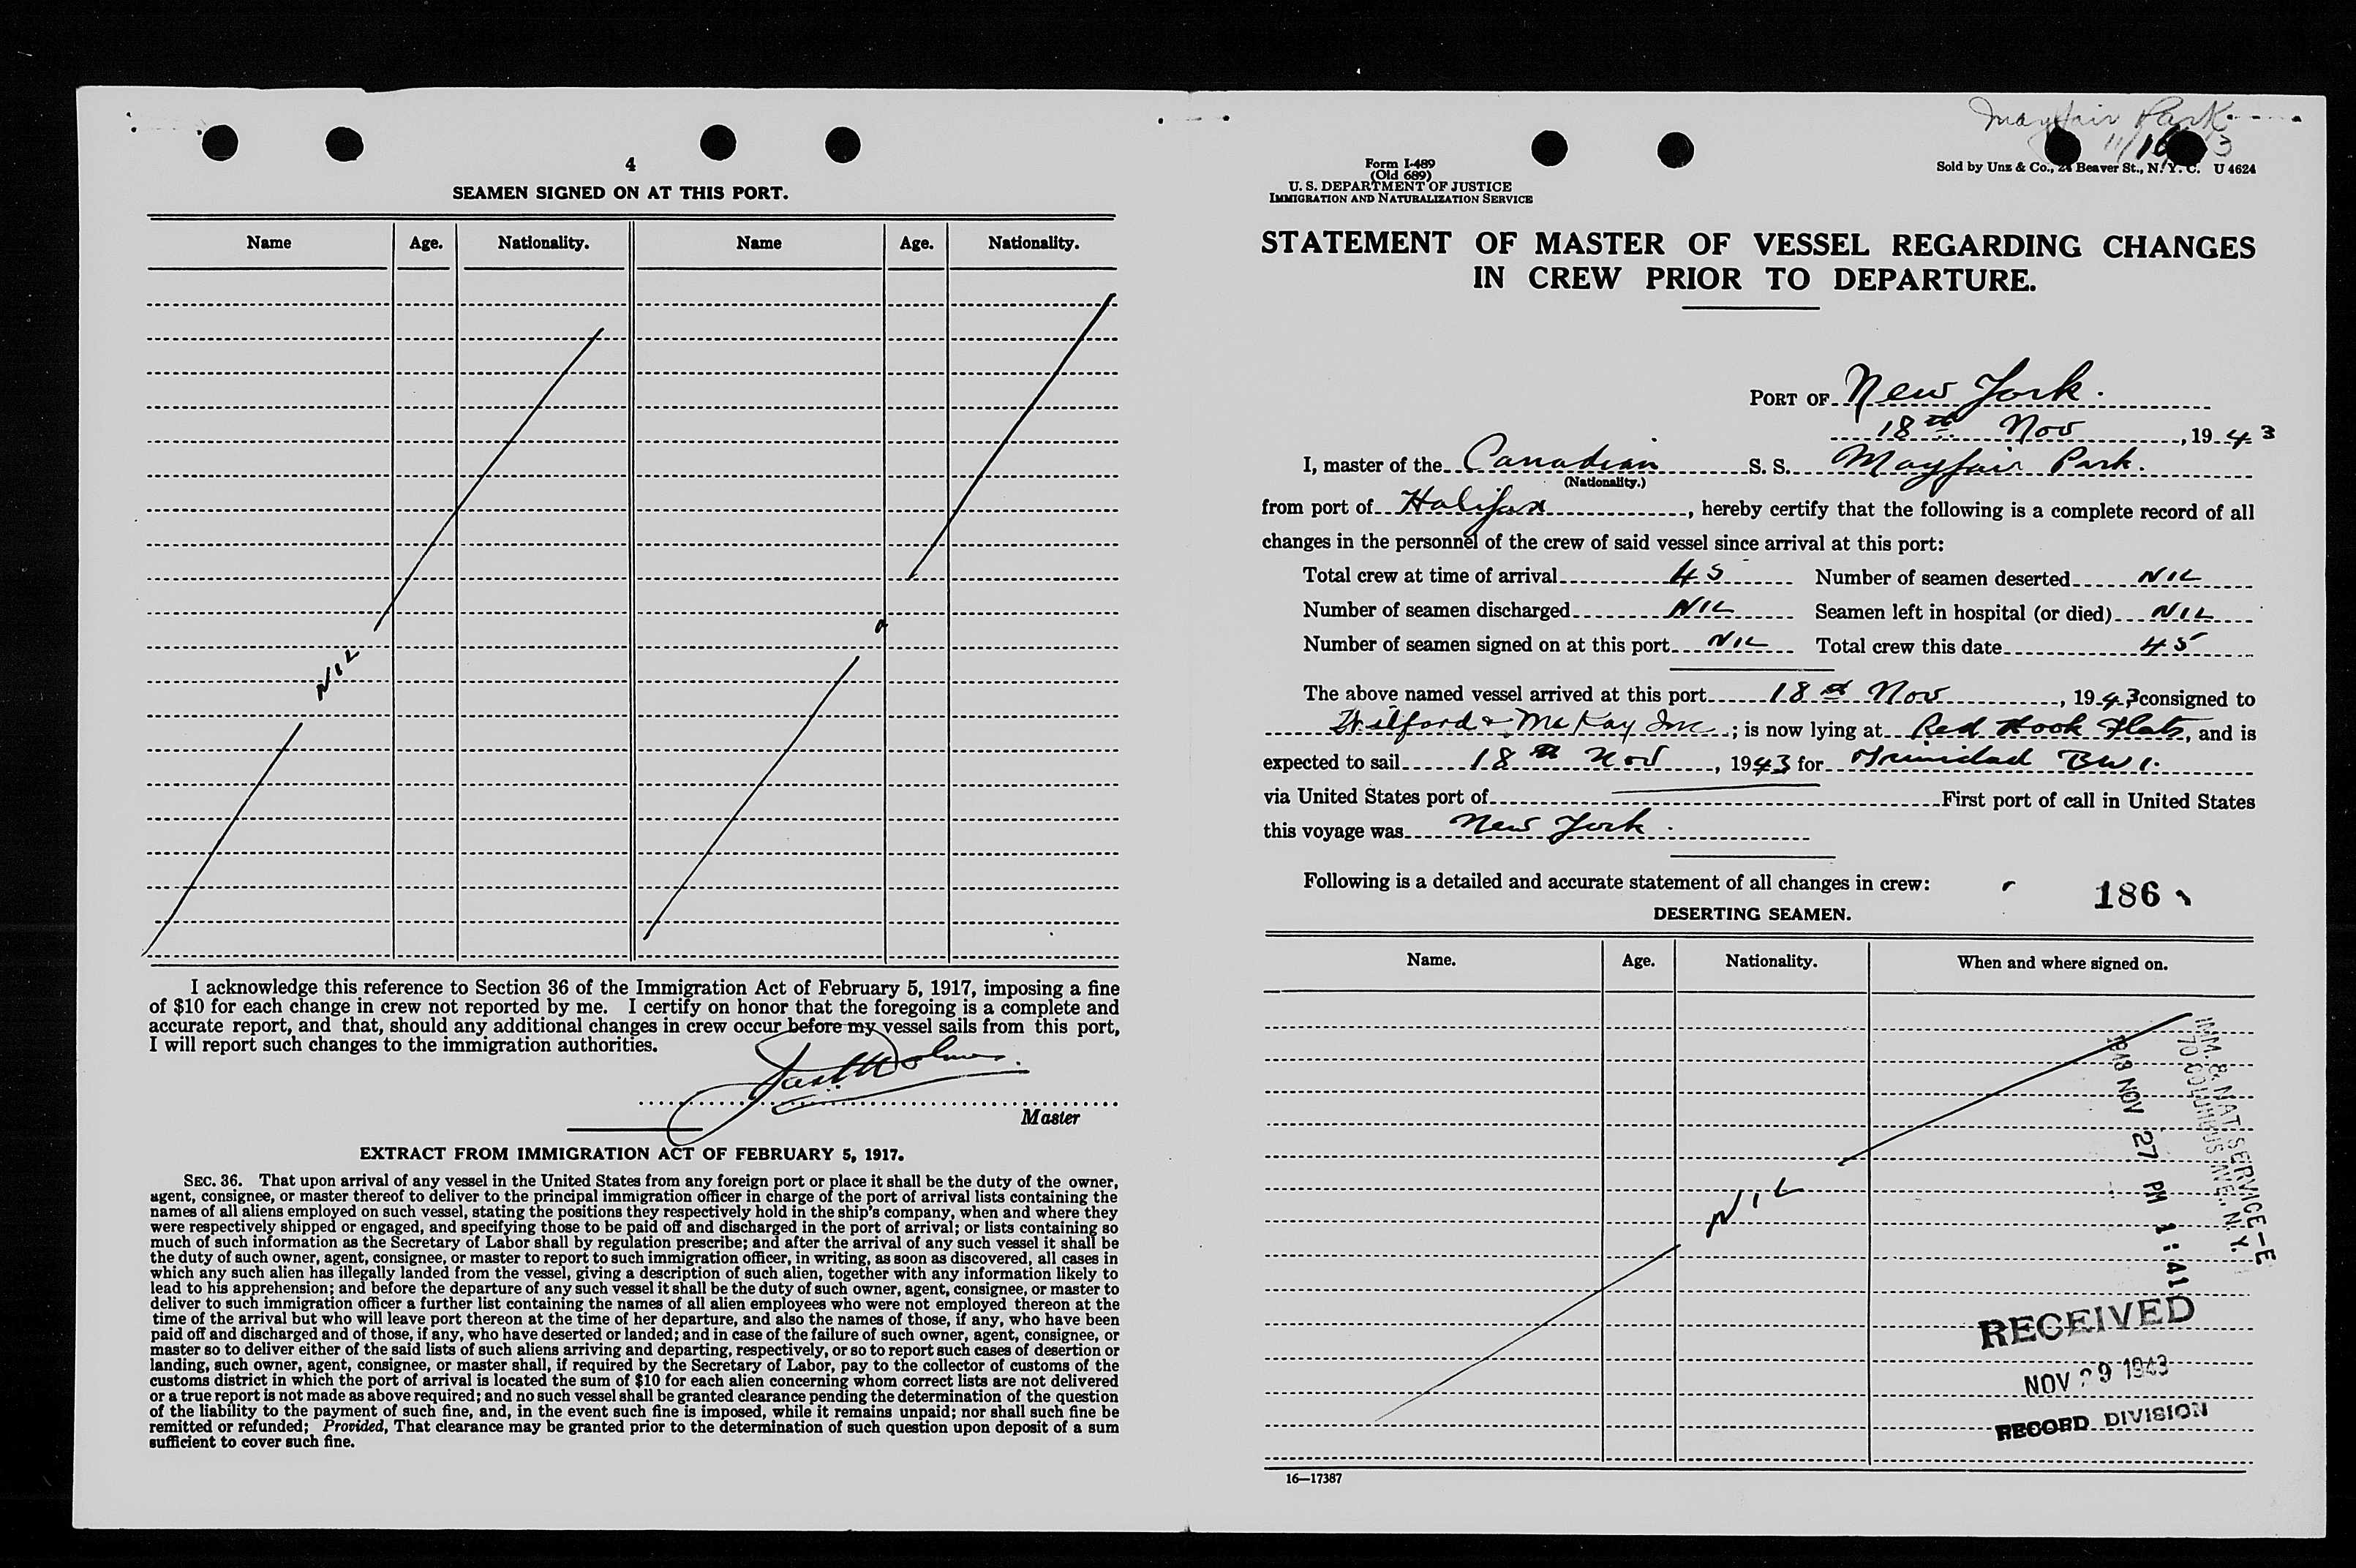 4
SEAMEN SIGNED ON AT THIS PORT.
Name Age. Nationality. Name Age. Nationality.
NIL
I acknowledge this reference to Section 36 of the Immigration Act of February 5, 1917, imposing a fine
of $10 for each change in crew not reported by me. I certify on honor that the foregoing is a complete and
accurate report, and that, should any additional changes in crew occur before my vessel sails from this port,
I will report such changes to the immigration authorities.
Master
EXTRACT FROM IMMIGRATION ACT OF FEBRUARY 5, 1917.
SEC. 36. That upon arrival of any vessel in the United States from any foreign port or place it shall be the duty of the owner,
agent, consignee, or master thereof to deliver to the principal immigration officer in charge of the port of arrival lists containing the
names of all aliens employed on such vessel, stating the positions they respectively hold in the ship's company, when and where they
were respectively shipped or engaged, and specifying those to be paid off and discharged in the port of arrival; or lists containing so
much of such information as the Secretary of Labor shall by regulation prescribe; and after the arrival of any such vessel it shall be
the duty of such owner, agent, consignee, or master to report to such immigration officer, in writing, as soon as discovered, all cases in
which any such alien has illegally landed from the vessel, giving a description of such alien, together with any information likely to
lead to his apprehension; and before the departure of any such vessel it shall be the duty of such owner, agent, consignee, or master to
deliver to such immigration officer a further list containing the names of all alien employees who were not employed thereon at the
time of the arrival but who will leave port thereon at the time of her departure, and also the names of those, if any, who have been
paid off and discharged and of those, if any, who have deserted or landed; and in case of the failure of such owner, agent, consignee, or
master so to deliver either of the said lists of such aliens arriving and departing, respectively, or so to report such cases of desertion or
landing, such owner, agent, consignee, or master shall, if required by the Secretary of Labor, pay to the collector of customs of the
customs district in which the port of arrival is located the sum of $10 for each alien concerning whom correct lists are not delivered
or a true report is not made as above required; and no such vessel shall be granted clearance pending the determination of the question
of the liability to the payment of such fine, and, in the event such fine is imposed, while it remains unpaid; nor shall such fine be
remitted or refunded; Provided, That clearance may be granted prior to the determination of such question upon deposit of a sum
sufficient to cover such fine.
Mayfair Park
11/16
Form I-489
(Old 689)
U. S. DEPARTMENT OF JUSTICE
IMMIGRATION AND NATURALIZATION SERVICE
Sold by Unz & Co., 24 Beaver St., N. Y. C. U 4624
STATEMENT OF MASTER OF VESSEL REGARDING CHANGES
IN CREW PRIOR TO DEPARTURE.
PORT OF New York.
18th Nov, 1943
I, master of the Canadian S. S. Mayfair Park.
(Nationality.)
from port of Halifax, hereby certify that the following is a complete record of all
changes in the personnel of the crew of said vessel since arrival at this port:
Total crew at time of arrival 45 Number of seamen deserted NIL
Number of seamen discharged NIL Seamen left in hospital (or died) NIL
Number of seamen signed on at this port NIL Total crew this date 45
The above named vessel arrived at this port 18th Nov, 1943 consigned to
Wilford & McKay Inc; is now lying at Red Hook Flats, and is
expected to sail 18th Nov, 1943 for Trinidad BWI.
via United States port of First port of call in United States
this voyage was New York.
Following is a detailed and accurate statement of all changes in crew:
186
DESERTING SEAMEN.
Name. Age. Nationality. When and where signed on.
NIL
IMM. & NAT SERVICE-E
70 COLUMBUS AVE., N.Y.
1943 NOV 27 PM 1:41
RECEIVED
NOV 29 1943
RECORD DIVISION
16—17387